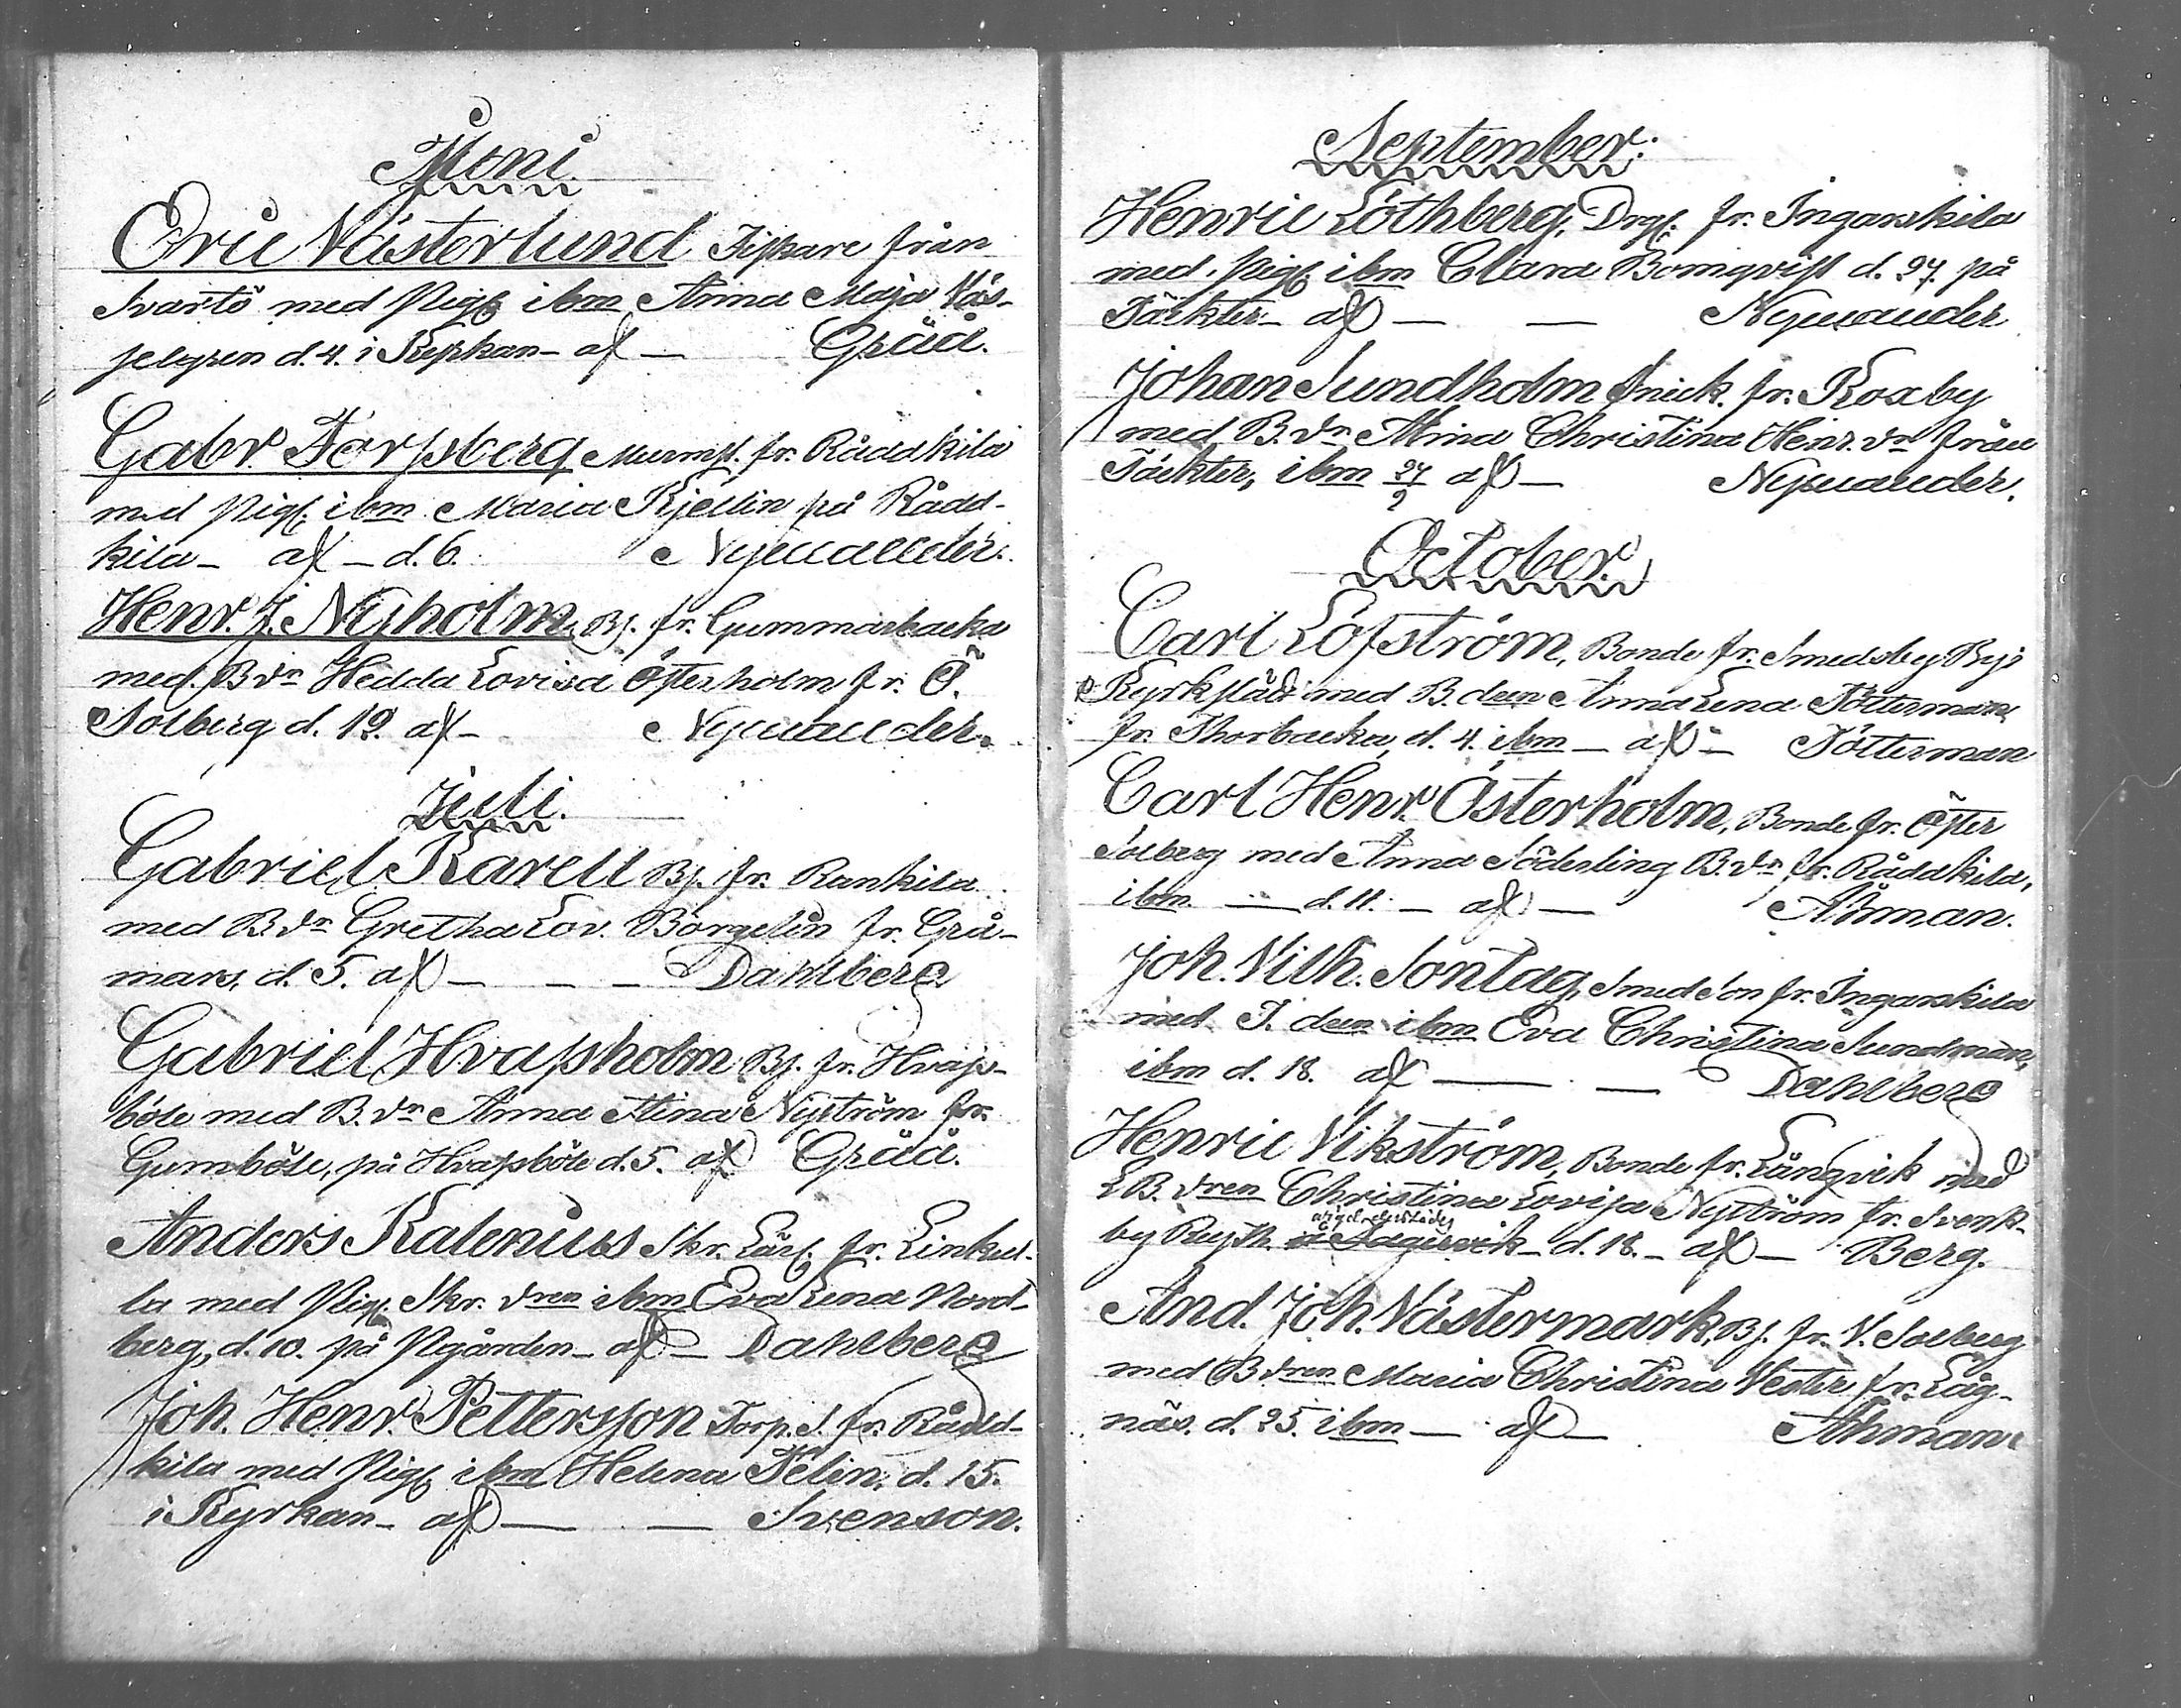 Juni.
Eric Västerlund Fiskare från
Svartö med Pig. ibm Anna Maja Väs-
jelgren d. 4. i Kyrkan - af - Gråå.
Gabr. Forssberg Murmst. fr. Råddkila
med Pig. ibm Maria Kjellin på Rådd-
kila - af - d. 6. Nymander.
Henr. J. Nyholm, Bs. fr. Gummarbacka
med B.dr Hedda Lovisa Österholm fr. Ö.
Solberg d. 12. af - Nymander.
Juli.
Gabriel Karell Bs. fr. Rankila
med B.dr Gretha Lov. Borgelin fr. Grå-
mars, d. 5. af - - - Dahlberg
Gabriel Hvassholm Bs. fr. Hvass-
böle med B.dr Anna Stina Nyström fr.
Gumböle, på Hvassböle d. 5. af Gråå.
Anders Kalenius Skr. Lärl. fr. Linkul-
la med Pig. Skr. dren ibm Eva Lena Nord-
berg, d. 10. på Pgården - af - Dahlberg
Joh. Henr. Pettersson Torp. S. fr. Rådd-
kila med Pig. ibm Helena Felin, d. 15.
i Kyrkan - af - - Svenson.
September:
Henric Löthberg, Drg. fr. Ingarskila
med Pig. ibm Clara Bomqvist d. 27. på
Täckter - af - - Nymander
Johan Sundholm Snick. fr. Roxby
med B.dr Stina Christina Henr.dr från
Täckter, ibm 27/9 af - Nymander.
October.
Carl Löfström, Bonde fr. Smedsby By i
Kyrkslätt med B. dren Anna Lena Fötterman
fr. Thorbacka, d. 4. ibm - af - Fötterman
Carl Henr. Österholm, Bonde fr. Öster
Solberg med Anna Söderling B.dr fr. Råddkila,
ibm - d. 11. - af - Åhman.
Joh. Vilh. Sontag, Smed Son fr. Ingarskila
med T. dren ibm Eva Christina Sundman,
ibm d. 18. af - - Dahlberg
Henric Vikström, Bonde fr. Långvik med
B. dren Christina Lovisa Nyström fr. Svenk-
by d. 18. - af - Berg.
And. Joh. Västermark, Bs. fr. V. Solberg
med B dren Maria Christina Vester fr. Låg-
näs. d. 25. ibm - af - Åhman